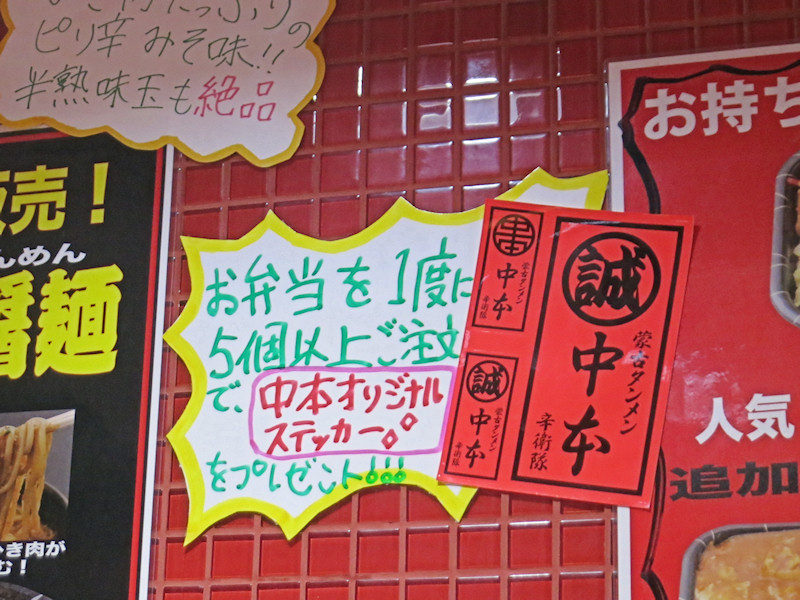 ピリ辛みそ味!!
半熟味玉も絶品
販売！
めん
麺
き肉が
む！
お弁当を1度に
5個以上ご注文
で、中本オリジナル
ステッカー。
をプレゼント!!!
中本
蒙古タンメン
辛衛隊
誠
中本
蒙古タンメン
辛衛隊
誠
蒙古タンメン
中本
辛衛隊
お持ち
人気
追加